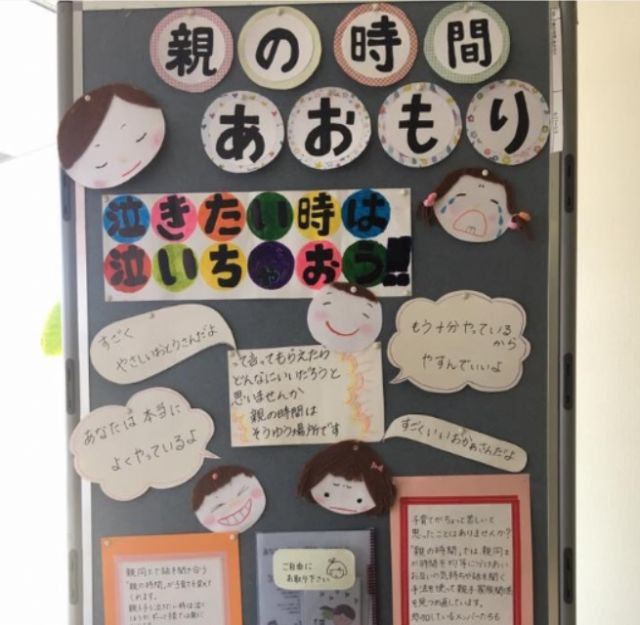 親の時間
あおもり
泣きたい時は
泣いちゃおう!!
すごく
やさしいおとうさんだよ
もう十分やっている
から
やすんでいいよ
って言ってもらえたら
どんなにいいだろうと
思いませんか
親の時間は
そうゆう場所です
あなたは本当に
よくやっているよ
すごくいいおかあさんだよ
子育てがちょっと苦しいと
思ったことはありませんか?
「親の時間」では、親同士
が時間を
お互いの気持ちや話を聞く
手法を使って親子・家族関係
を見つめ直しています。
参加しているメンバーたちも
親同士で話を聞き合う
「親の時間」が子育てを支えて
くれます。
ご自由に
お取り下さい